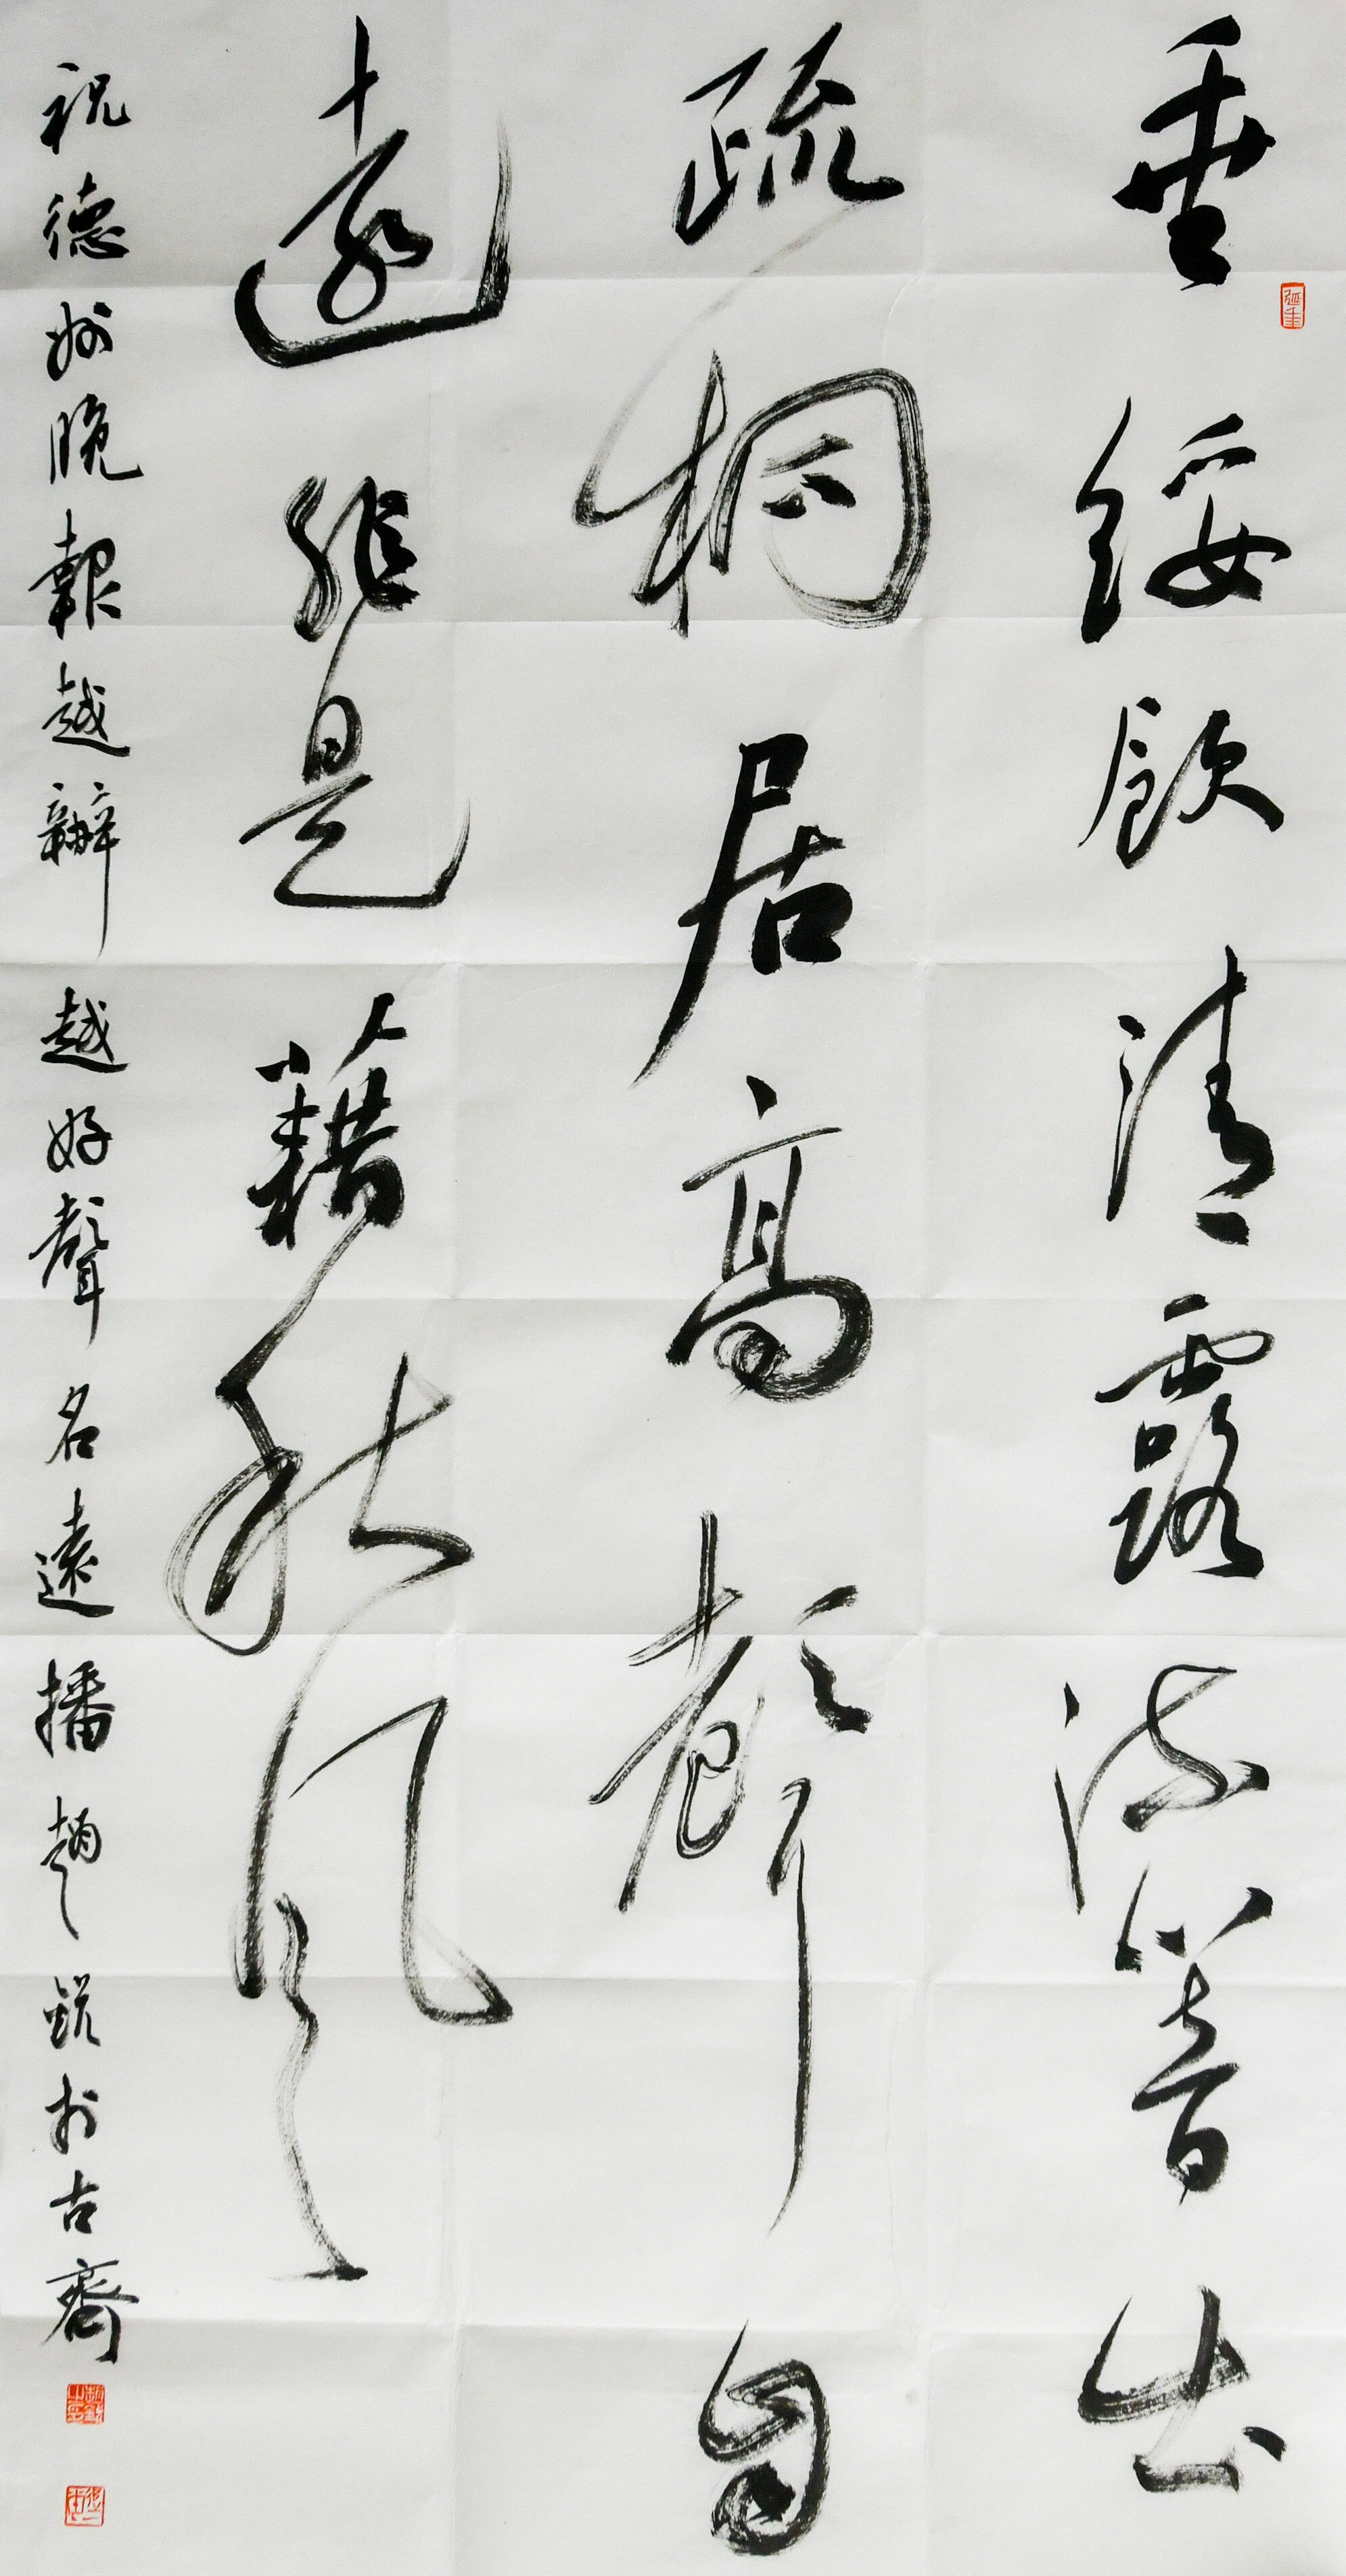 垂緌飲清露流響出
疏桐居高聲自
遠非是藉秋風
祝德州晚報越辦越好聲名遠播趙銳於古齋